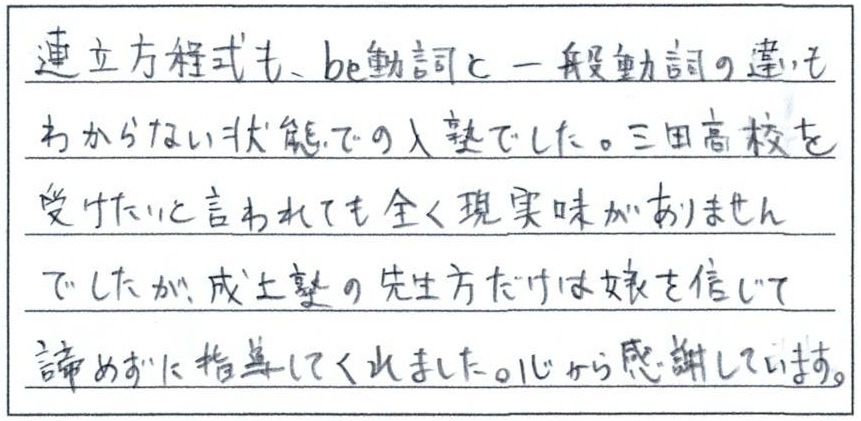 連立方程式も、be動詞と一般動詞の違いも
わからない状態での入塾でした。三田高校を
受けたいと言われても全く現実味がありません
でしたが、成士塾の先生方だけは娘を信じて
諦めずに指導してくれました。心から感謝しています。